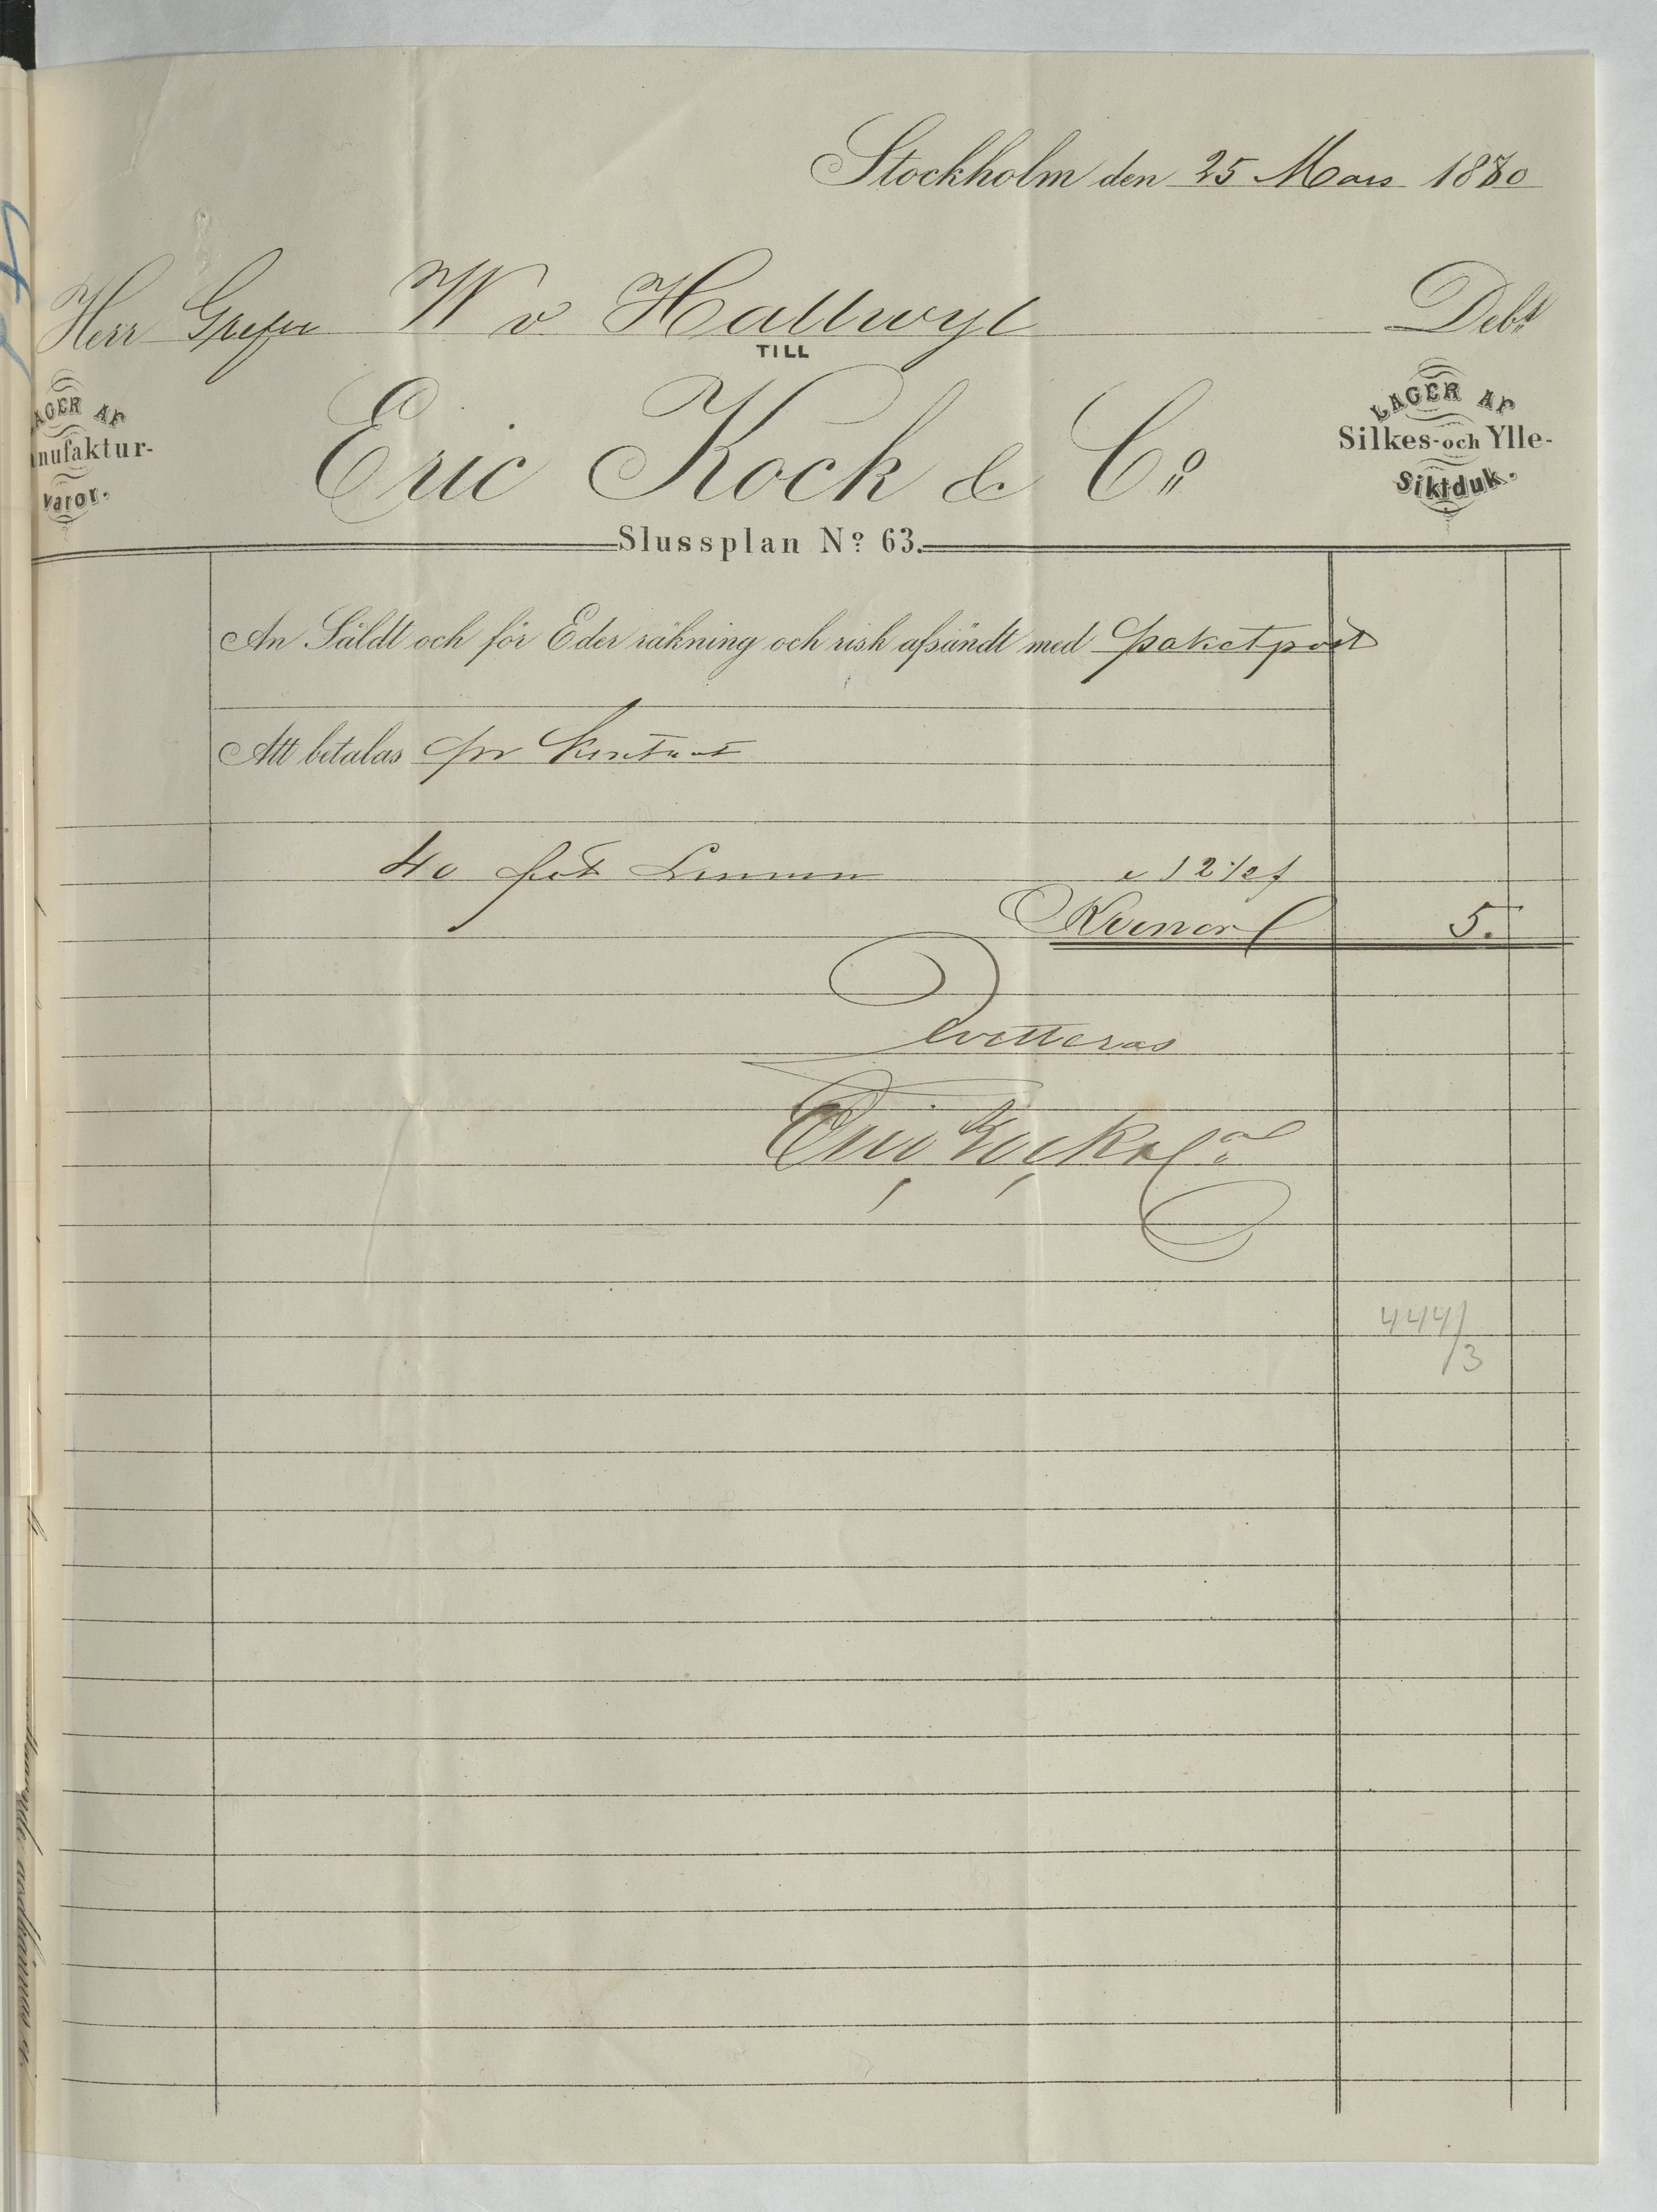 Stockholm den 25 Mars 1880
Herr Grefve W v Hallwyl Debt
TILL
LAGER AF
nufaktur-
varor.
Eric Kock & Co
LAGER AF
Silkes- och Ylle-
Siktduk.
Slussplan No 63.
An Såldt och för Eder räkning och risk afsändt med paketpost
Att betalas pr Kontant
40 fot Linnen a 12 1/2 f
Kronor 5.
Qvitteras
Eric Kock & Co
444/3